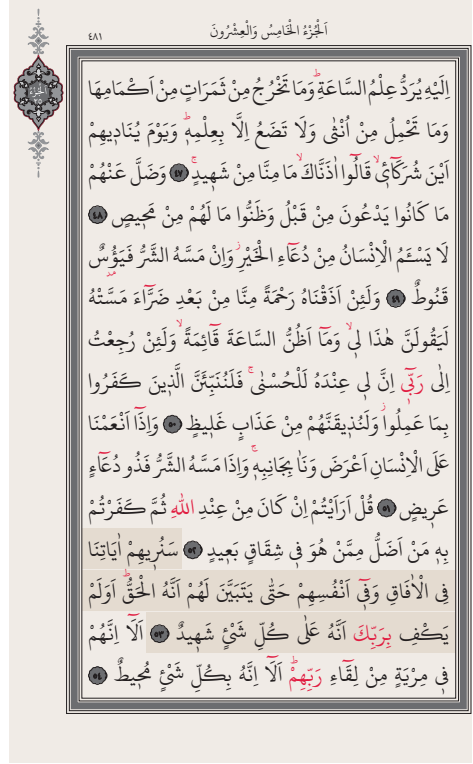 اَلْجُزْءُ الْخَامِسُ وَالْعِشْرُونَ
٤٨١
الجزء
اِلَيْهِ يُرَدُّ عِلْمُ السَّاعَةِۜ وَمَا تَخْرُجُ مِنْ ثَمَرَاتٍ مِنْ اَكْمَامِهَا
وَمَا تَحْمِلُ مِنْ اُنْثٰى وَلَا تَضَعُ اِلَّا بِعِلْمِه۪ۜ وَيَوْمَ يُنَاد۪يهِمْ
اَيْنَ شُرَكَٓاء۪يۙ قَالُٓوا اٰذَنَّاكَۙ مَا مِنَّا مِنْ شَه۪يدٍۚ ﴿٤٧﴾ وَضَلَّ عَنْهُمْ
مَا كَانُوا يَدْعُونَ مِنْ قَبْلُ وَظَنُّوا مَا لَهُمْ مِنْ مَح۪يصٍ ﴿٤٨﴾
لَا يَسْـَٔمُ الْاِنْسَانُ مِنْ دُعَٓاءِ الْخَيْرِۘ وَاِنْ مَسَّهُ الشَّرُّ فَيَؤُ۫سٌ
قَنُوطٌ ﴿٤٩﴾ وَلَئِنْ اَذَقْنَاهُ رَحْمَةً مِنَّا مِنْ بَعْدِ ضَرَّٓاءَ مَسَّتْهُ
لَيَقُولَنَّ هٰذَا ل۪يۙ وَمَٓا اَظُنُّ السَّاعَةَ قَٓائِمَةًۙ وَلَئِنْ رُجِعْتُ
اِلٰى رَبّ۪ٓي اِنَّ ل۪ي عِنْدَهُ لَلْحُسْنٰىۚ فَلَنُنَبِّئَنَّ الَّذ۪ينَ كَفَرُوا
بِمَا عَمِلُواۘ وَلَنُذ۪يقَنَّهُمْ مِنْ عَذَابٍ غَل۪يظٍ ﴿٥٠﴾ وَاِذَٓا اَنْعَمْنَا
عَلَى الْاِنْسَانِ اَعْرَضَ وَنَاٰ بِجَانِبِه۪ۚ وَاِذَا مَسَّهُ الشَّرُّ فَذُو دُعَٓاءٍ
عَر۪يضٍ ﴿٥١﴾ قُلْ اَرَاَيْتُمْ اِنْ كَانَ مِنْ عِنْدِ اللّٰهِ ثُمَّ كَفَرْتُمْ
بِه۪ مَنْ اَضَلُّ مِمَّنْ هُوَ ف۪ي شِقَاقٍ بَع۪يدٍ ﴿٥٢﴾ سَنُر۪يهِمْ اٰيَاتِنَا
فِي الْاٰفَاقِ وَف۪ٓي اَنْفُسِهِمْ حَتّٰى يَتَبَيَّنَ لَهُمْ اَنَّهُ الْحَقُّۜ اَوَلَمْ
يَكْفِ بِرَبِّكَ اَنَّهُ عَلٰى كُلِّ شَيْءٍ شَه۪يدٌ ﴿٥٣﴾ اَلَٓا اِنَّهُمْ
ف۪ي مِرْيَةٍ مِنْ لِقَٓاءِ رَبِّهِمْۜ اَلَٓا اِنَّهُ بِكُلِّ شَيْءٍ مُح۪يطٌ ﴿٥٤﴾